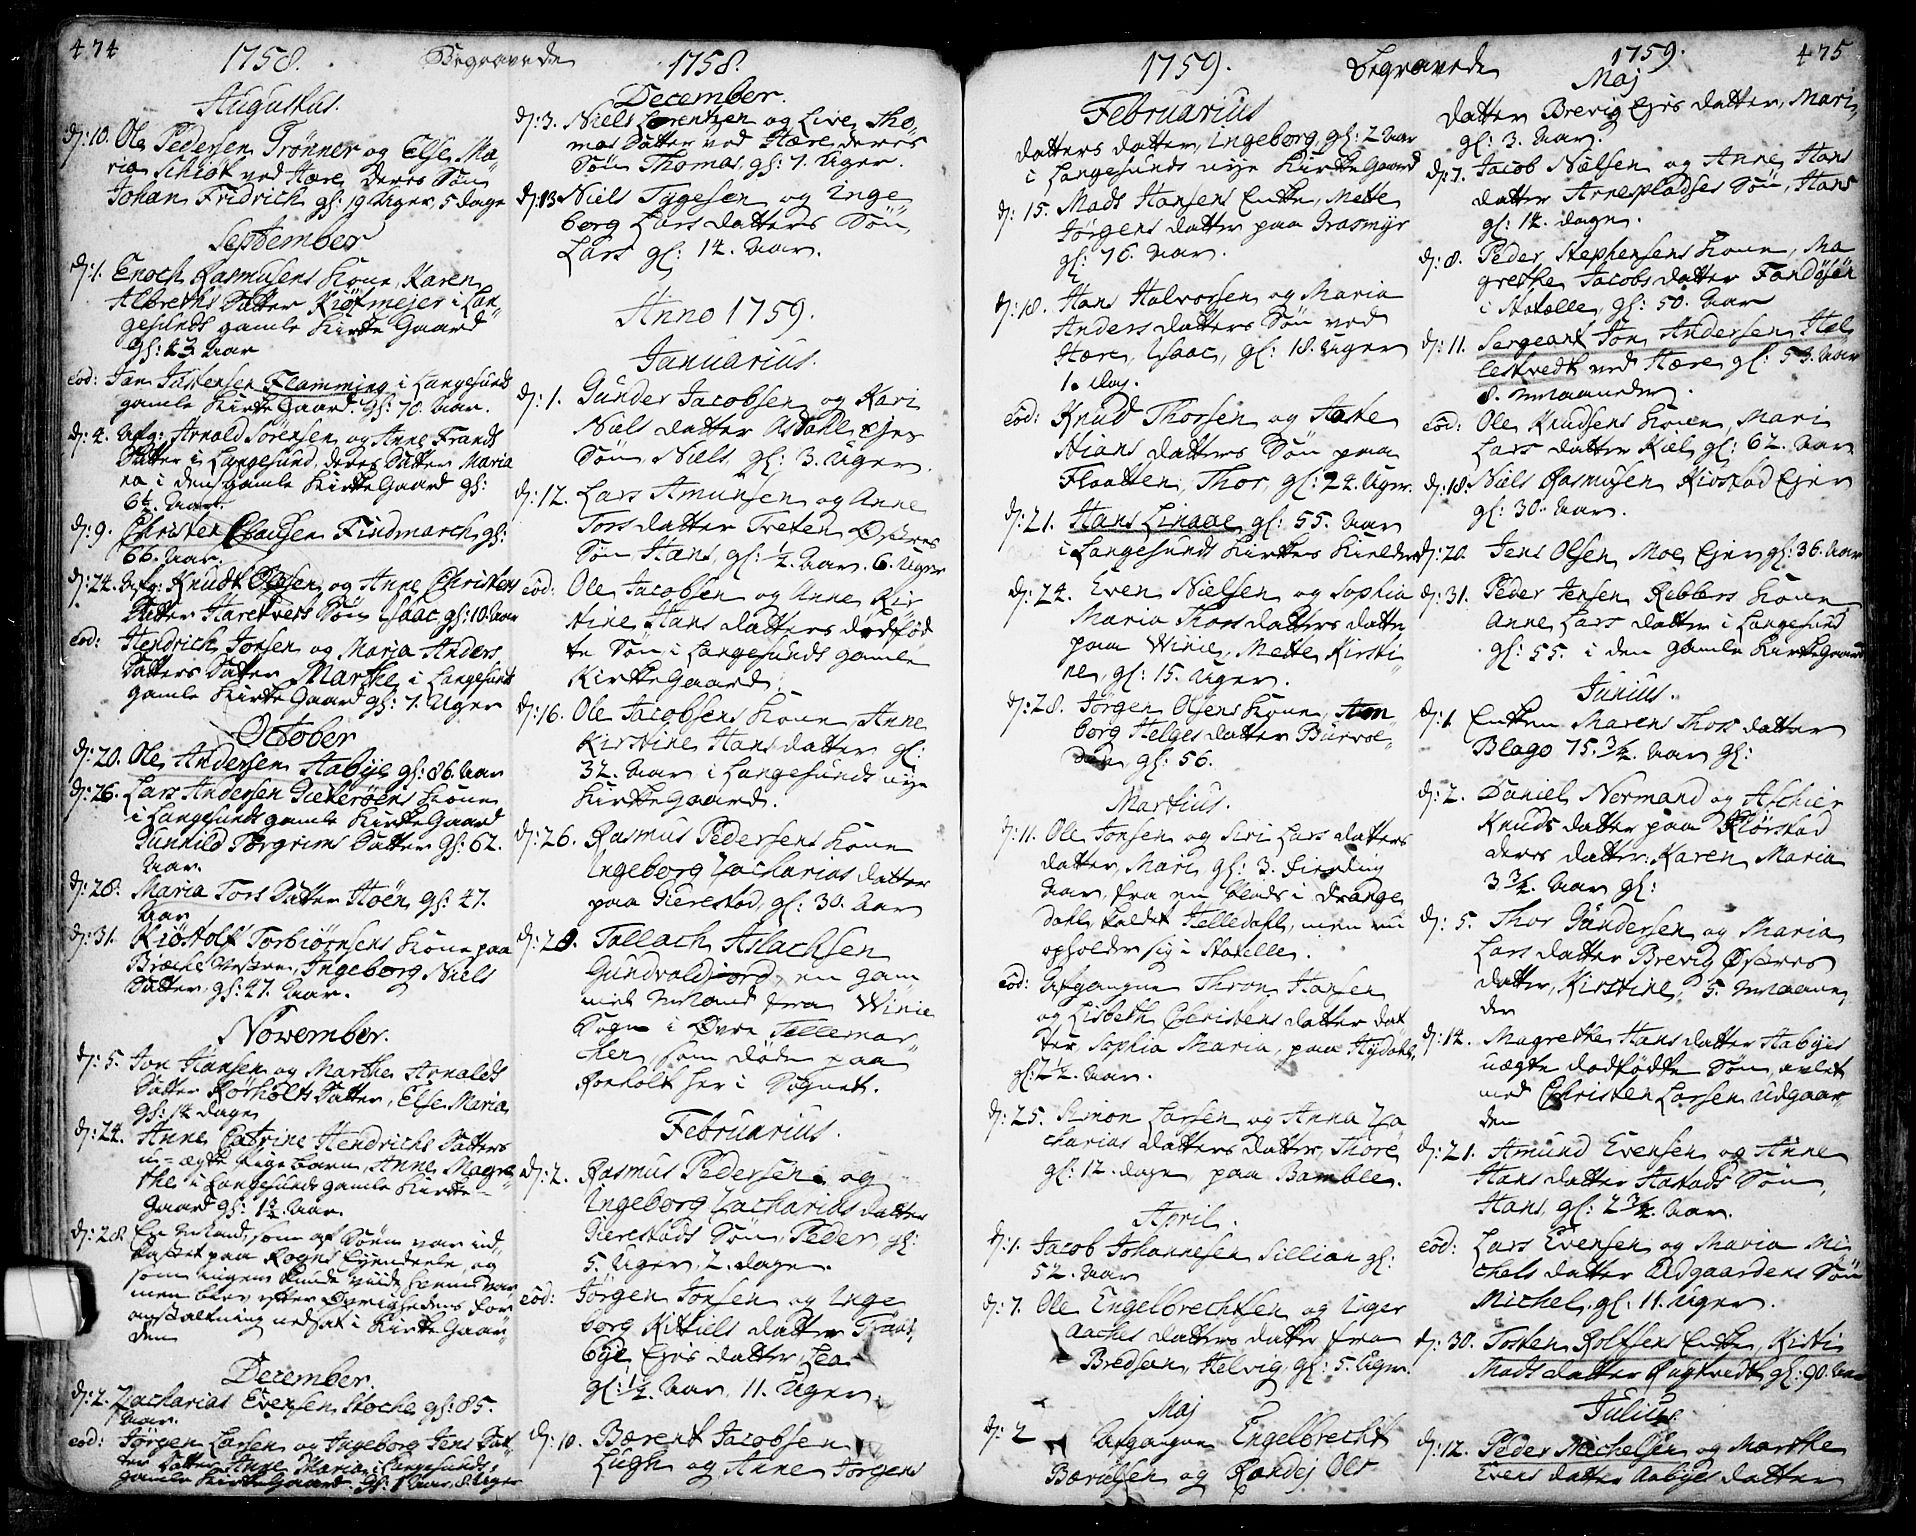 474
1758.
Begravede
1758.
Augustus.
d: 10. Ole Pedersen Grönner og Else Ma,
ria Schiöt ved Hære deres Sön
Johan Fridrich gl: 19 Uger, 5 dage
September
d: 1. Enoch Rasmusens Kone, Karen
Albreths Datter Kiöfmejer i Lan,
gesunds gamle Kirke Gaard
gl: 43 Aar
eod: Jan Justensen Flamming i Langesunds
gamle Kirke Gaard. gl: 70. Aar.
d: 4. Afg: Arnold Sörensen og Anne Frands
Datter i Langesund, deres Datter Maria
na i den gamle Kirke Gaard gl:
6½ Aar.
d: 9. Christen Clausen Findmarch gl:
66. Aar.
d: 24. Afg: Knudt Olsen og Anne Christens
Datter Haretvets Sön Isaac gl: 10 Aar
eod: Hendrich Jonsen og Maria Anders
Datters Datter Marthe i Langesunds
gamle Kirke Gaard gl: 7. Uger
October
d: 20. Ole Andersen Aabye gl: 86. Aar
d: 26. Lars Andersen Gieteröens Kone
i Langesunds gamle Kirke Gaard
Gunnild Torgrims Datter gl: 62.
Aar.
d: 28. Maria Tors Datter Höen gl: 47.
Aar
d: 31. Kiöstolf Torbiörnsens Kone paa
Bræche Westre, Ingeborg Niels
Datter, gl: 47. Aar.
November.
d: 5. Jon Hansen og Marthe Arnolds
Datter Rörholts Datter, Else Maria
gl: 14 dage
d: 24. Anne Catrine Hendrichs Datters
u-ægte Pigebarn, Anne Magre,
the i Langesunds gamle Kirke-
Gaard gl: 1½. Aar.
d: 28 En Mand, som af Söen var ind,
kastet paa Rogns Eyendeele, og
som ingen kunde viide hvem var
men blev efter Övrighedens for
anstaltning nedsat i Kirke Gaar,
den
December.
d: 2. Zacharias Evensen Stoche gl: 85.
Aar.
eod: Jörgen Larsen og Ingeborg Jens Dat,
ters Datter Anne Maria i Langesunds
gamle Kirke Gaard. gl: 1 Aar, 8 Uger
December.
d: 3. Niels Lorentzen og Live Tho,
mas Datter ved Hære deres
Sön Thomas, gl: 7. Uger.
d: 13 Niels Tygesen og Inge
borg Lars datters Sön,
Lars gl: 14. Aar.
Anno 1759.
Januarius.
d: 1. Gunder Jacobsen og Kari
Niels datter Asdahl Ejes
Sön, Niels, gl: 3. Uger.
d: 12. Lars Amunsen og Anne
Tors datter Treten Östres
Sön Hans, gl: ½. Aar. 6. Uger
eod: Ole Jacobsen og Anne Kir,
stine Hans datters dödföd
te Sön i Langesunds gamle
Kirke Gaard.
d: 16. Ole Jacobsens Kone Anne
Kirstine Hans datter gl:
32. Aar i Langesunds nye
Kirke Gaard.
d: 26. Rasmus Pedersens Kone
Ingeborg Zacharias datter
paa Gierestad, gl: 30. Aar
d: 28. Tallach Aslachsen
Gundvaldjord, en gam
mel Mand fra Winie
Sogn i Övre Tellemar,
chen, som döde paa
Ronholt her i Sognet.
Februarius.
d: 2. Rasmus Pedersen og
Ingeborg Zacharias datter
Gierestads Sön, Peder, gl:
5. Uger, 2. dage.
eod: Jörgen Jonsen og Inge
borg Kittils datter Traat,
bye Ejes datter, Lea
gl: ½. Aar, 11. Uger.
d: 10. Bærent Jacobsen
Lugn og Anne Jörgens
1759.
Begravede
1759.
475
Februarius
datters datter, Ingeborg, gl: 2 Aar
i Langesunds nye Kirke Gaard
d: 15. Mads Hansens Enke, Mette
Jörgens datter paa Grasmyr
gl: 76. Aar.
d: 18. Hans Halvorsen og Maria
Anders datters Sön ved
Hære, Isaac, gl: 18. Uger
1. dag.
eod: Knud Thorsen og Aaste
Hians datters Sön paa
Flaatten, Thor, gl: 24. Uger.
d: 21. Hans Linaae gl: 55. Aar
i Langesunds Kirkes Kielder
d: 24. Even Nielsen og Sophia
Maria Thors datters datter
paa Winie, Mette Kirsti,
ne, gl: 15. Uger.
d: 28. Jörgen Olsens Kone, Am
borg Helges datter Burvol,
den gl: 56.
Martius.
d: 11. Ole Jonsen og Siri Lars datters
datter, Mari, gl: 3. Fierding
Aar, fra en Plads i Drange
dahl, kaldet Helledahl, men nu
opholder sig i Statelle.
eod: Afgangne Thron Hansen
og Lisbeth Christens datter dat
ter, Sophia Maria, paa Hydahl,
gl: 2½. Aar.
d: 25. Simon Larsen og Anna Za
charias datters datter, Thore
gl: 12. dage paa Bamble.
April.
d: 1. Jacob Johannesen Sillian gl:
52. Aar
d: 7. Ole Engelbrechtsen og Uger
Aaches datters datter fra
Bredsen, Helvig, gl: 5. Uger.
Maj
d: 2 Afgangne Engelbrecht
Bærulsen og Randej Ols
Maj
datter Brevig Ejes datter, Mari,
gl: 3. Aar.
d: 7. Jacob Nielsen og Anne Hans
datter Arnepladses Sön, Hans
gl: 14. dage.
d: 8. Peder Stephensens Kone, Ma
grethe Jacobs datter Fandösen
i Statelle, gl: 50. Aar
d: 11. Sergeant Jon Andersen Hel
lestvedt ved Hære gl: 53. Aar
8. Maaneder.
eod: Ole Knudsens Kone, Mari
Lars datter Kiel gl: 62. Aar
d: 18. Niels Rasmusen Kiöstad Ejer
gl: 30. Aar.
d: 20. Jens Olsen Moe Ejer gl: 36. Aar
d: 31. Peder Jensen Ribbers Kone
Anne Lars datter i Langesund
gl: 55. i den gamle Kirke Gaard
Junius.
d: 1. Enken Maren Thors datter
Blago 75. ¾. Aar gl:
d: 2. Daniel Normand og Aschier
Knuds datter paa Kiörstad
deres datter: Karen Maria
3¾. Aar gl:
d: 5. Thor Gundersen og Maria
Lars datter Brevig Östres
datter, Kirstine, 5. Maane,
der
d: 14. Magrethe Hans datter Aabyes
uægte dödfödte Sön, avlet
med Christen Larsen Udgaar,
den
d: 21. Amund Evensen og Anne
Hans datter Hastads Sön,
Hans, gl: 2¾. Aar.
eod: Lars Evensen og Maria Mi
chels datter Udgaardens Sön
Michel, gl: 11. Uger.
d: 30. Tosten Rolfsens Enke, Kirsti
Mads datter Rugtvedt gl: 90. Aar
Julius.
d: 12. Peder Michelsen og Marthe
Evens datter Aabyes datter